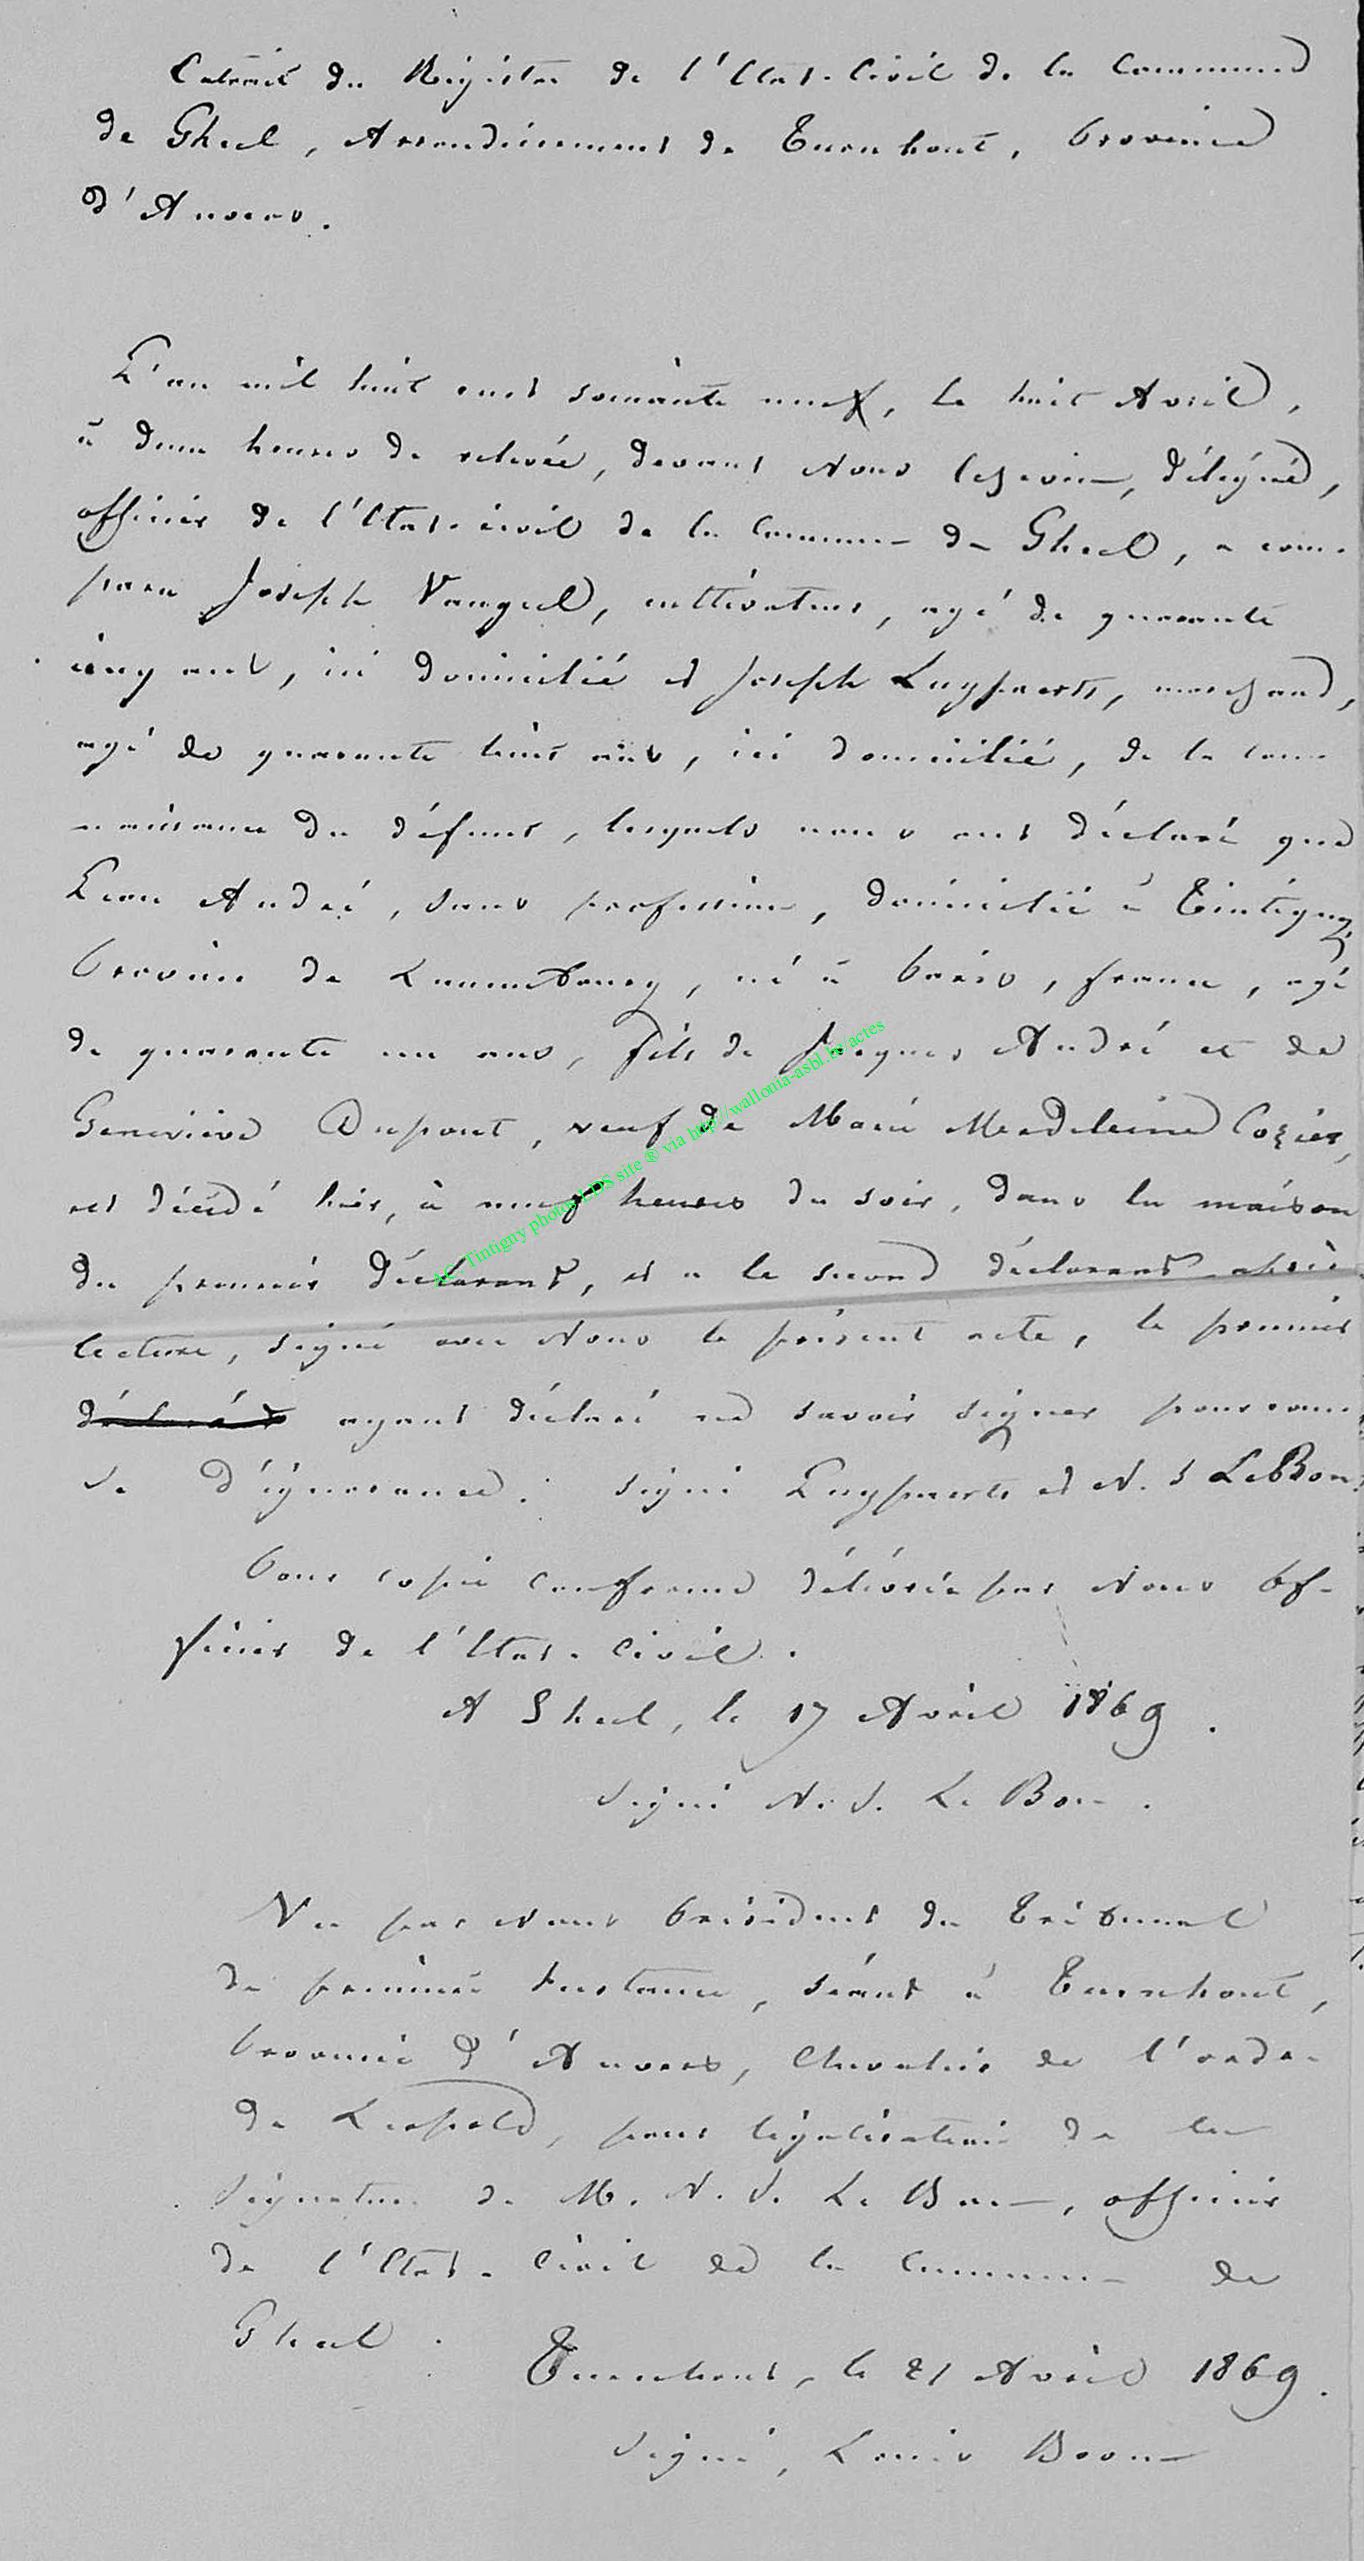 Extrait du Registre de l'Etat-Civil de la Commune
de Gheel, Arrondissement de Turnhout, Province
d'Anvers.
L'an mil huit cent soixante neuf, le huit Avril,
à deux heures de relevée, devant Nous Echevin, délégué,
officier de l'Etat-civil de la Commune de Gheel, a com-
paru Joseph Vangeel, cultivateur, agé de quarante
cinq ans, ici domicilié et Joseph Luypaerts, marchand,
agé de quarante huit ans, ici domicilié, de la con-
naissance du défunt, lesquels nous ont déclaré que
Léon André, sans profession, domicilié à Tintigny
Province de Luxembourg, né à Paris, france, agé
de quarante un ans, fils de Jacques André et de
Geneviève Dupont, veuf de Marie Madeleine Cozier,
est décédé hier, à neuf heures du soir, dans la maison
du premier déclarant, et a le second déclarant après
lecture, signé avec Nous le présent acte, le premier
ayant déclaré ne savoir signer pour cau-
se d'ignorance. signé Luypaerts et N. J LeBon.
Pour copie conforme délivrée par Nous Of-
ficier de l'Etat-Civil.
A Gheel, le 17 Avril 1869.
signé N. J. Le Bon.
Vu par Nous Président du Tribunal
de première Instance, séant à Turnhout,
Province d'Anvers, Chevalier de l'ordre
de Léopold, pour légalisation de la
signature de M. N. J. Le Bon, officier
de l'Etat-Civil de la Commune de
Gheel.
Turnhout, le 21 Avril 1869.
signé, Louis Boon
AC Tintigny photos LDS site ® via http://wallonia-asbl.be/actes